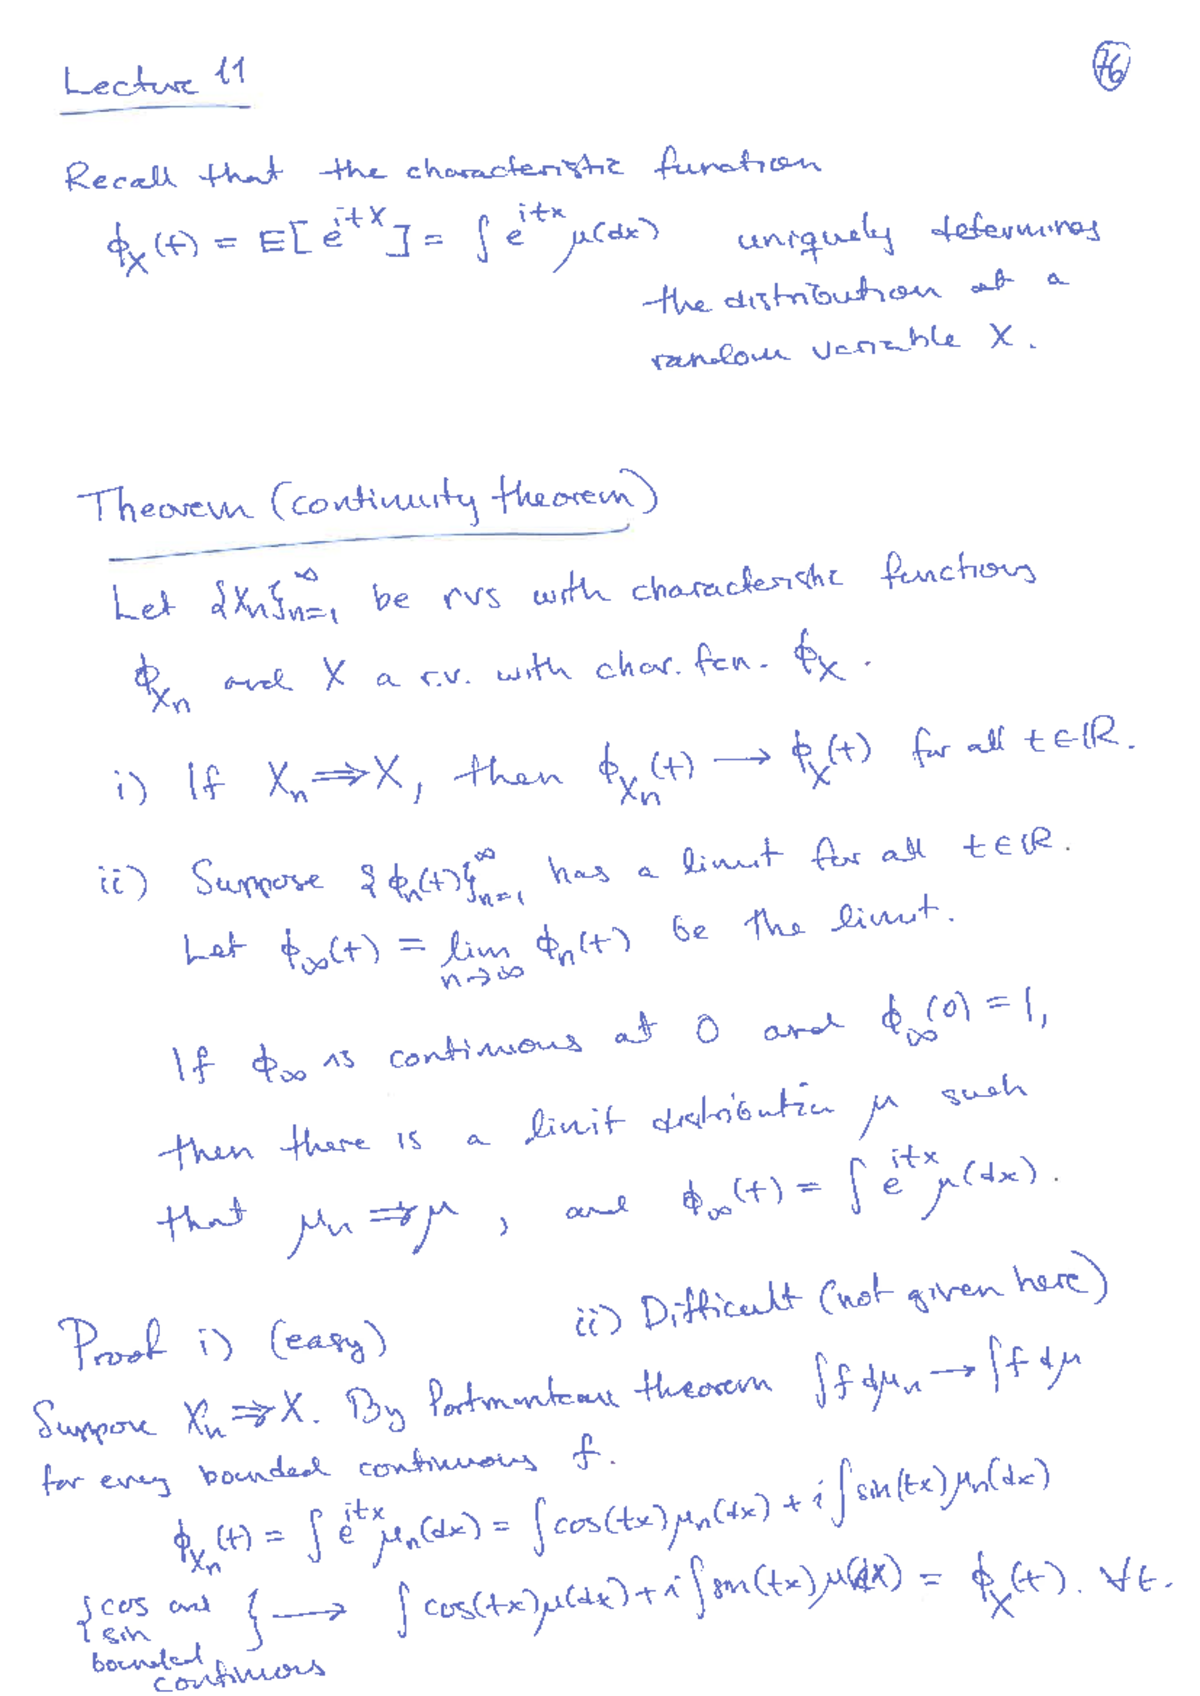 Lecture 11
76
Recall that the characteristic function
ϕ_X(t) = E[e^{itX}] = ∫ e^{itx} μ(dx) uniquely determines
the distribution of a
random variable X.
Theorem (continuity theorem)
Let {X_n}_{n=1}^∞ be rvs with characteristic functions
ϕ_{X_n} and X a r.v. with char. fcn. ϕ_X.
i) If X_n ⇒ X, then ϕ_{X_n}(t) → ϕ_X(t) for all t∈ℝ.
ii) Suppose {ϕ_n(t)}_{n=1}^∞ has a limit for all t∈ℝ.
Let ϕ_∞(t) = lim_{n→∞} ϕ_n(t) be the limit.
If ϕ_∞ is continuous at 0 and ϕ_∞(0) = 1,
then there is a limit distribution μ such
that μ_n ⇒ μ, and ϕ_∞(t) = ∫ e^{itx} μ(dx).
Proof i) (easy) ii) Difficult (not given here)
Suppose X_n ⇒ X. By Portmanteau theorem ∫f dμ_n → ∫f dμ
for every bounded continuous f.
ϕ_{X_n}(t) = ∫ e^{itx} μ_n(dx) = ∫cos(tx)μ_n(dx) + i∫sin(tx)μ_n(dx)
{cos and sin bounded continuous} → ∫cos(tx)μ(dx) + i∫sin(tx)μ(dx) = ϕ_X(t). ∀t.